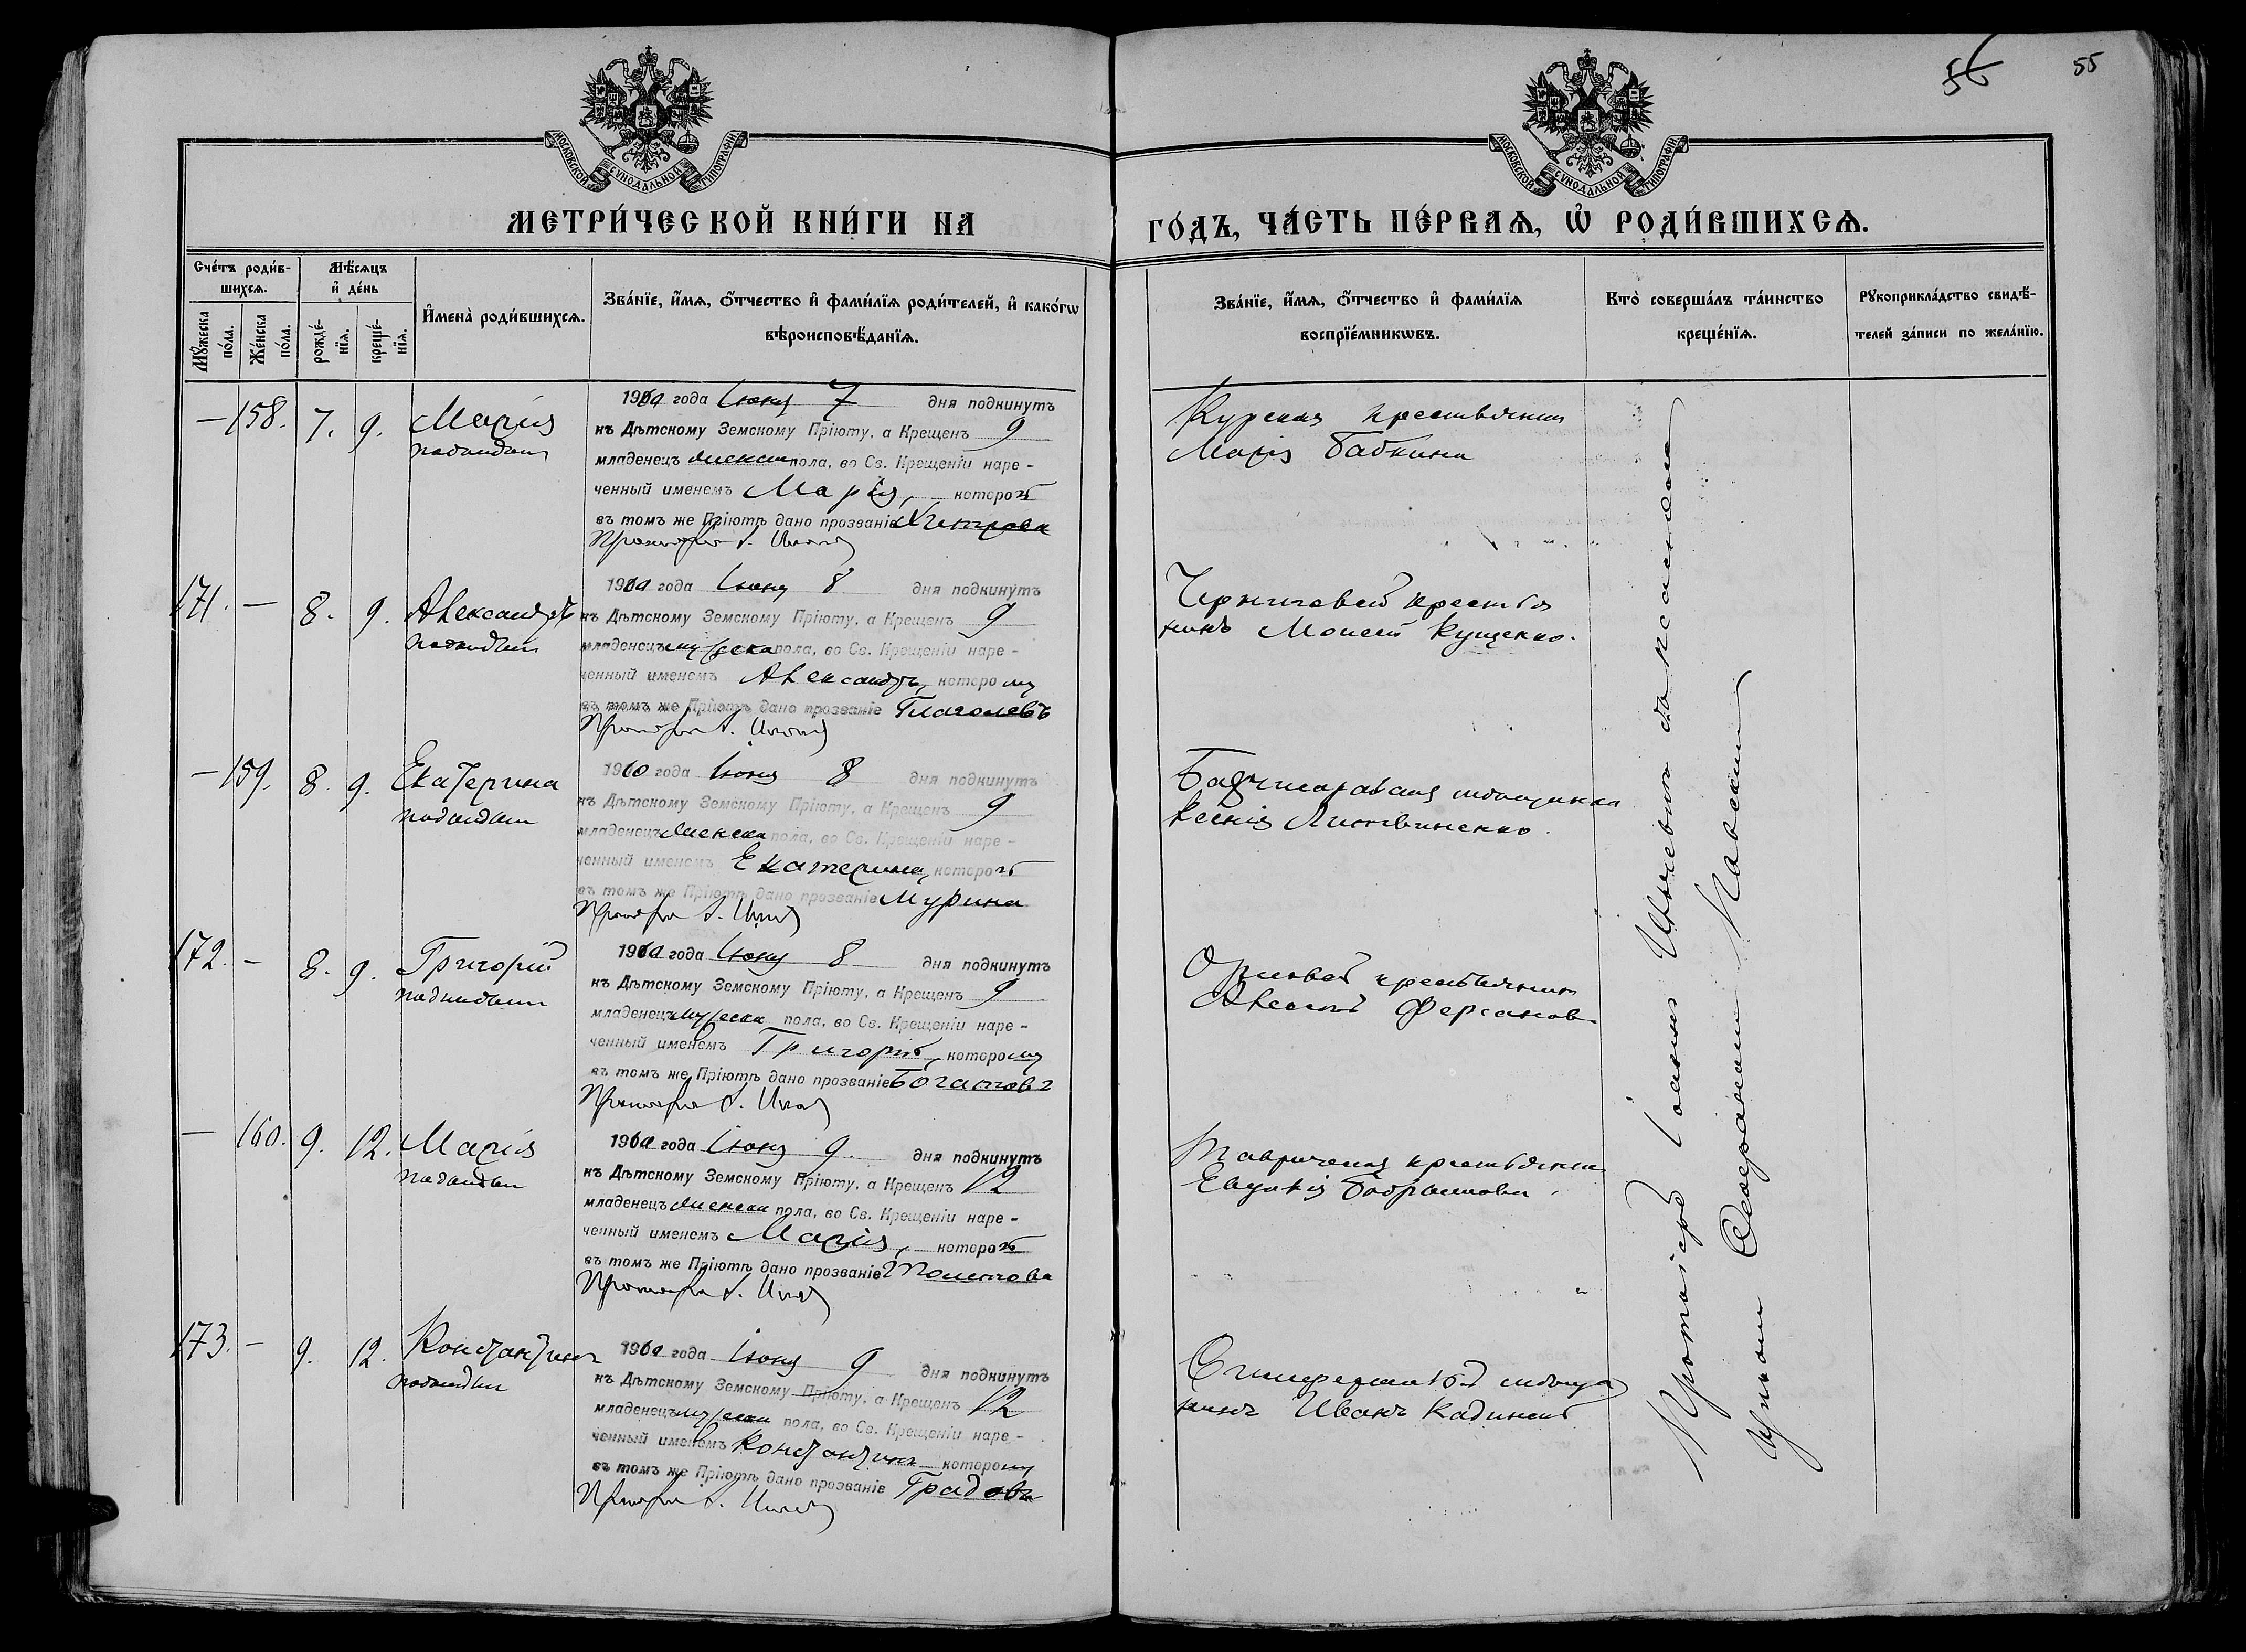 56 55
МОСКОВСКОЙ СѴНОДАЛЬНОЙ ТИПОГРАФІИ.
МОСКОВСКОЙ СѴНОДАЛЬНОЙ ТИПОГРАФІИ.
МЕТРИ́ЧЕСКОЙ КНИ́ГИ НА
ГО́ДЪ, ЧА́СТЬ ПЕ́РВАѦ, Ѡ҆ РОДИ́ВШИХСѦ.
Сче́тъ роди́в-
шихсѧ.
Мꙋ́жеска по́ла.
Же́нска по́ла.
Мѣ́сѧцъ
и҆ де́нь
рожде́-
нїѧ.
креще́-
нїѧ.
И҆мена̀ роди́вшихсѧ.
Зва́нїе, и҆́мѧ, ѻ҆́тчество и҆ фами́лїѧ роди́телей, и҆ како́гѡ
вѣроисповѣ́данїѧ.
Зва́нїе, и҆́мѧ, ѻ҆́тчество и҆ фами́лїѧ
воспрїе́мникѡвъ.
Кто̀ соверша́лъ та́инство
креще́нїѧ.
Рꙋкоприкла́дство свидѣ́-
телей за́писи по жела́нїю.
— 158. 7. 9. Марія
1910 года Іюня 7 дня подкинутъ
къ Дѣтскому Земскому Пріюту, а Крещенъ 9
младенецъ женска пола, во Св. Крещеніи наре-
ченный именемъ Марія, которой
въ томъ же Пріютѣ дано прозваніе Хитрова
Курская крестьянка
Марія Бабкина
171. — 8. 9. Александръ
1910 года Іюня 8 дня подкинутъ
къ Дѣтскому Земскому Пріюту, а Крещенъ 9
младенецъ мужеска пола, во Св. Крещеніи наре-
ченный именемъ Александръ, которому
въ томъ же Пріютѣ дано прозваніе Глаголевъ
Черниговскій крестья
нинъ Моисей Кущенко.
— 159. 8. 9. Екатерина
1910 года Іюня 8 дня подкинутъ
къ Дѣтскому Земскому Пріюту, а Крещенъ 9
младенецъ женска пола, во Св. Крещеніи наре-
ченный именемъ Екатерина, которой
въ томъ же Пріютѣ дано прозваніе Мурина
Бахчисарайская мѣщанка
Ксенія Литвиненко.
172. — 8. 9. Григорій
1910 года Іюня 8 дня подкинутъ
къ Дѣтскому Земскому Пріюту, а Крещенъ 9
младенецъ мужеска пола, во Св. Крещеніи наре-
ченный именемъ Григорій, которому
въ томъ же Пріютѣ дано прозваніе Богатовъ
Орловскій крестьянинъ
Алексѣй Ферсанов.
— 160. 9. 12. Марія
1910 года Іюня 9 дня подкинутъ
къ Дѣтскому Земскому Пріюту, а Крещенъ 12
младенецъ женска пола, во Св. Крещеніи наре-
ченный именемъ Марія, которой
въ томъ же Пріютѣ дано прозваніе Толстова
Таврическая крестьянка
Евдокія
173. — 9. 12. Константинъ
1910 года Іюня 9 дня подкинутъ
къ Дѣтскому Земскому Пріюту, а Крещенъ 12
младенецъ мужеска пола, во Св. Крещеніи наре-
ченный именемъ Константинъ которому
въ томъ же Пріютѣ дано прозваніе Градовъ
Симферопольскій мѣща
нинъ Иванъ Кадинскій
Протоіерей Іоаннъ съ псаломщикомъ